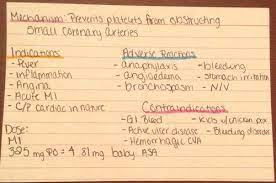 Mechanism: Prevents platelets from obstructing
small coronary arteries
Indications:
- Fever
- inflammation
- Angina
- Acute MI
- C/P cardiac in nature
Adverse Reactions
- anaphylaxis
- angioedema
- bronchospasm
- bleeding
- stomach irritation
- N/V
Contraindications
- GI Bleed
- Active ulcer disease
- Hemorrhagic CVA
- Kids w/ chicken pox
- Bleeding disorders
Dose:
MI
325 mg PO = 4 81mg baby ASA